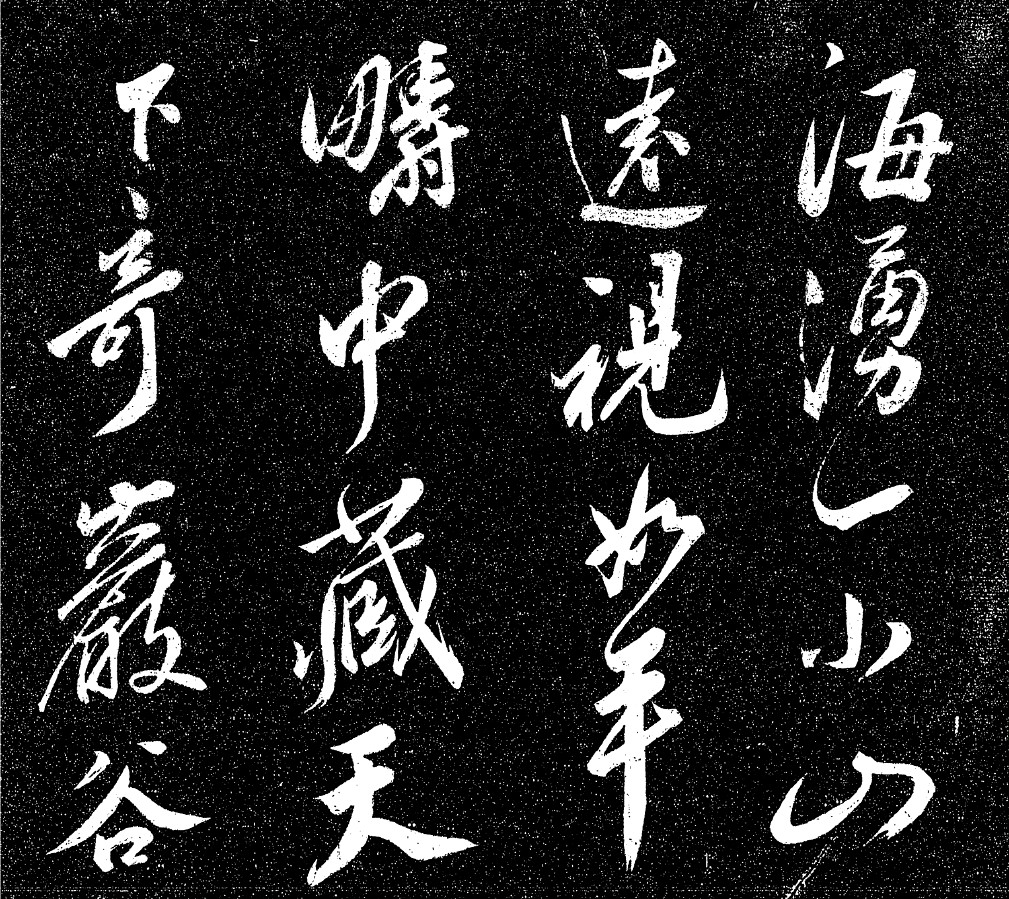 海湧一小山
遠視如平
疇中藏天
下奇巖谷